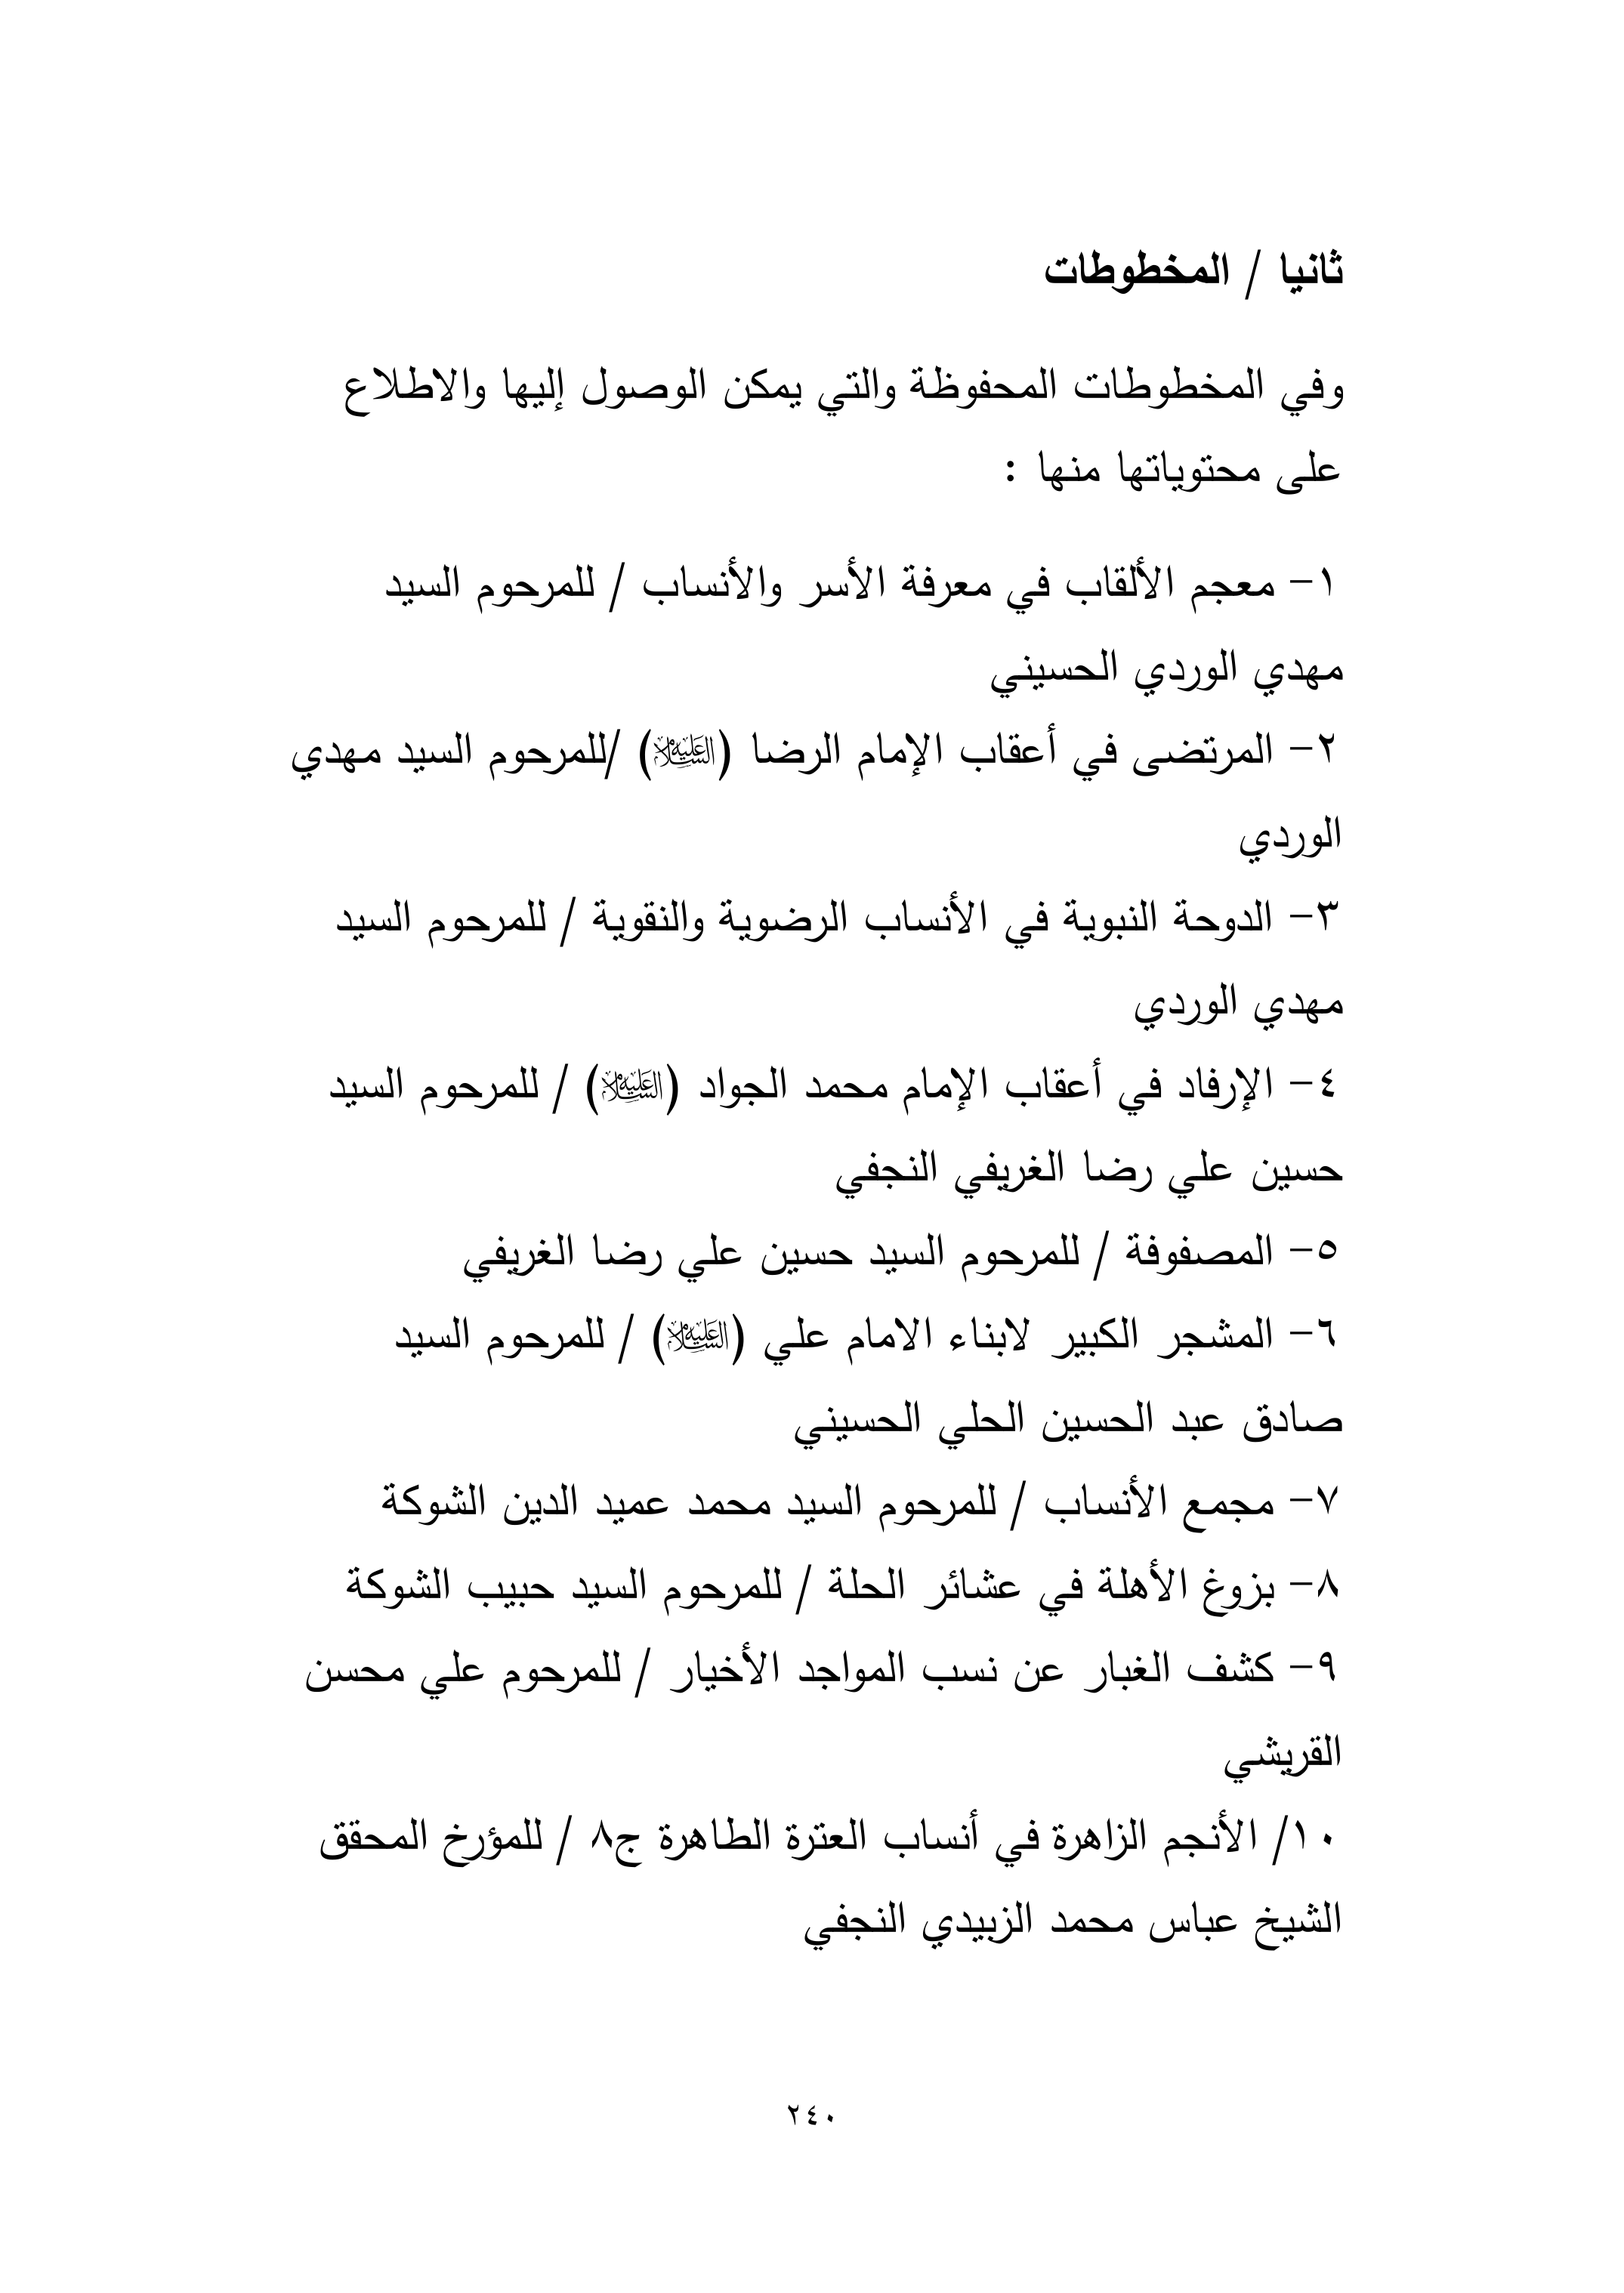 ثانيا / المخطوطات
وفي المخطوطات المحفوظة والتي يمكن الوصول إليها والاطلاع
على محتوياتها منها :
١- معجم الألقاب في معرفة الأسر والأنساب / للمرحوم السيد
مهدي الوردي الحسيني
٢- المرتضى في أعقاب الإمام الرضا (عليه السلام) /للمرحوم السيد مهدي
الوردي
٣- الدوحة النبوية في الأنساب الرضوية والنقوية / للمرحوم السيد
مهدي الوردي
٤- الإرفاد في أعقاب الإمام محمد الجواد (عليه السلام) / للمرحوم السيد
حسين علي رضا الغريفي النجفي
٥- المصفوفة / للمرحوم السيد حسين علي رضا الغريفي
٦- المشجر الكبير لابناء الامام علي (عليه السلام) / للمرحوم السيد
صادق عبد الحسين الحلي الحسيني
٧- مجمع الأنساب / للمرحوم السيد محمد عميد الدين الشوكة
٨- بزوغ الأهلة في عشائر الحلة / للمرحوم السيد حبيب الشوكة
٩- كشف الغبار عن نسب المواجد الأخيار / للمرحوم علي محسن
القريشي
١٠/ الأنجم الزاهرة في أنساب العترة الطاهرة ج٨ / للمؤرخ المحقق
الشيخ عباس محمد الزبيدي النجفي
٢٤٠